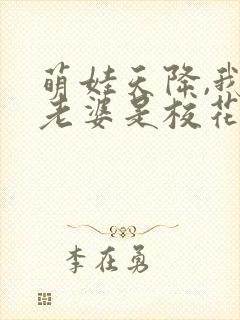 萌娃天降,我
老婆是校花
李在勇